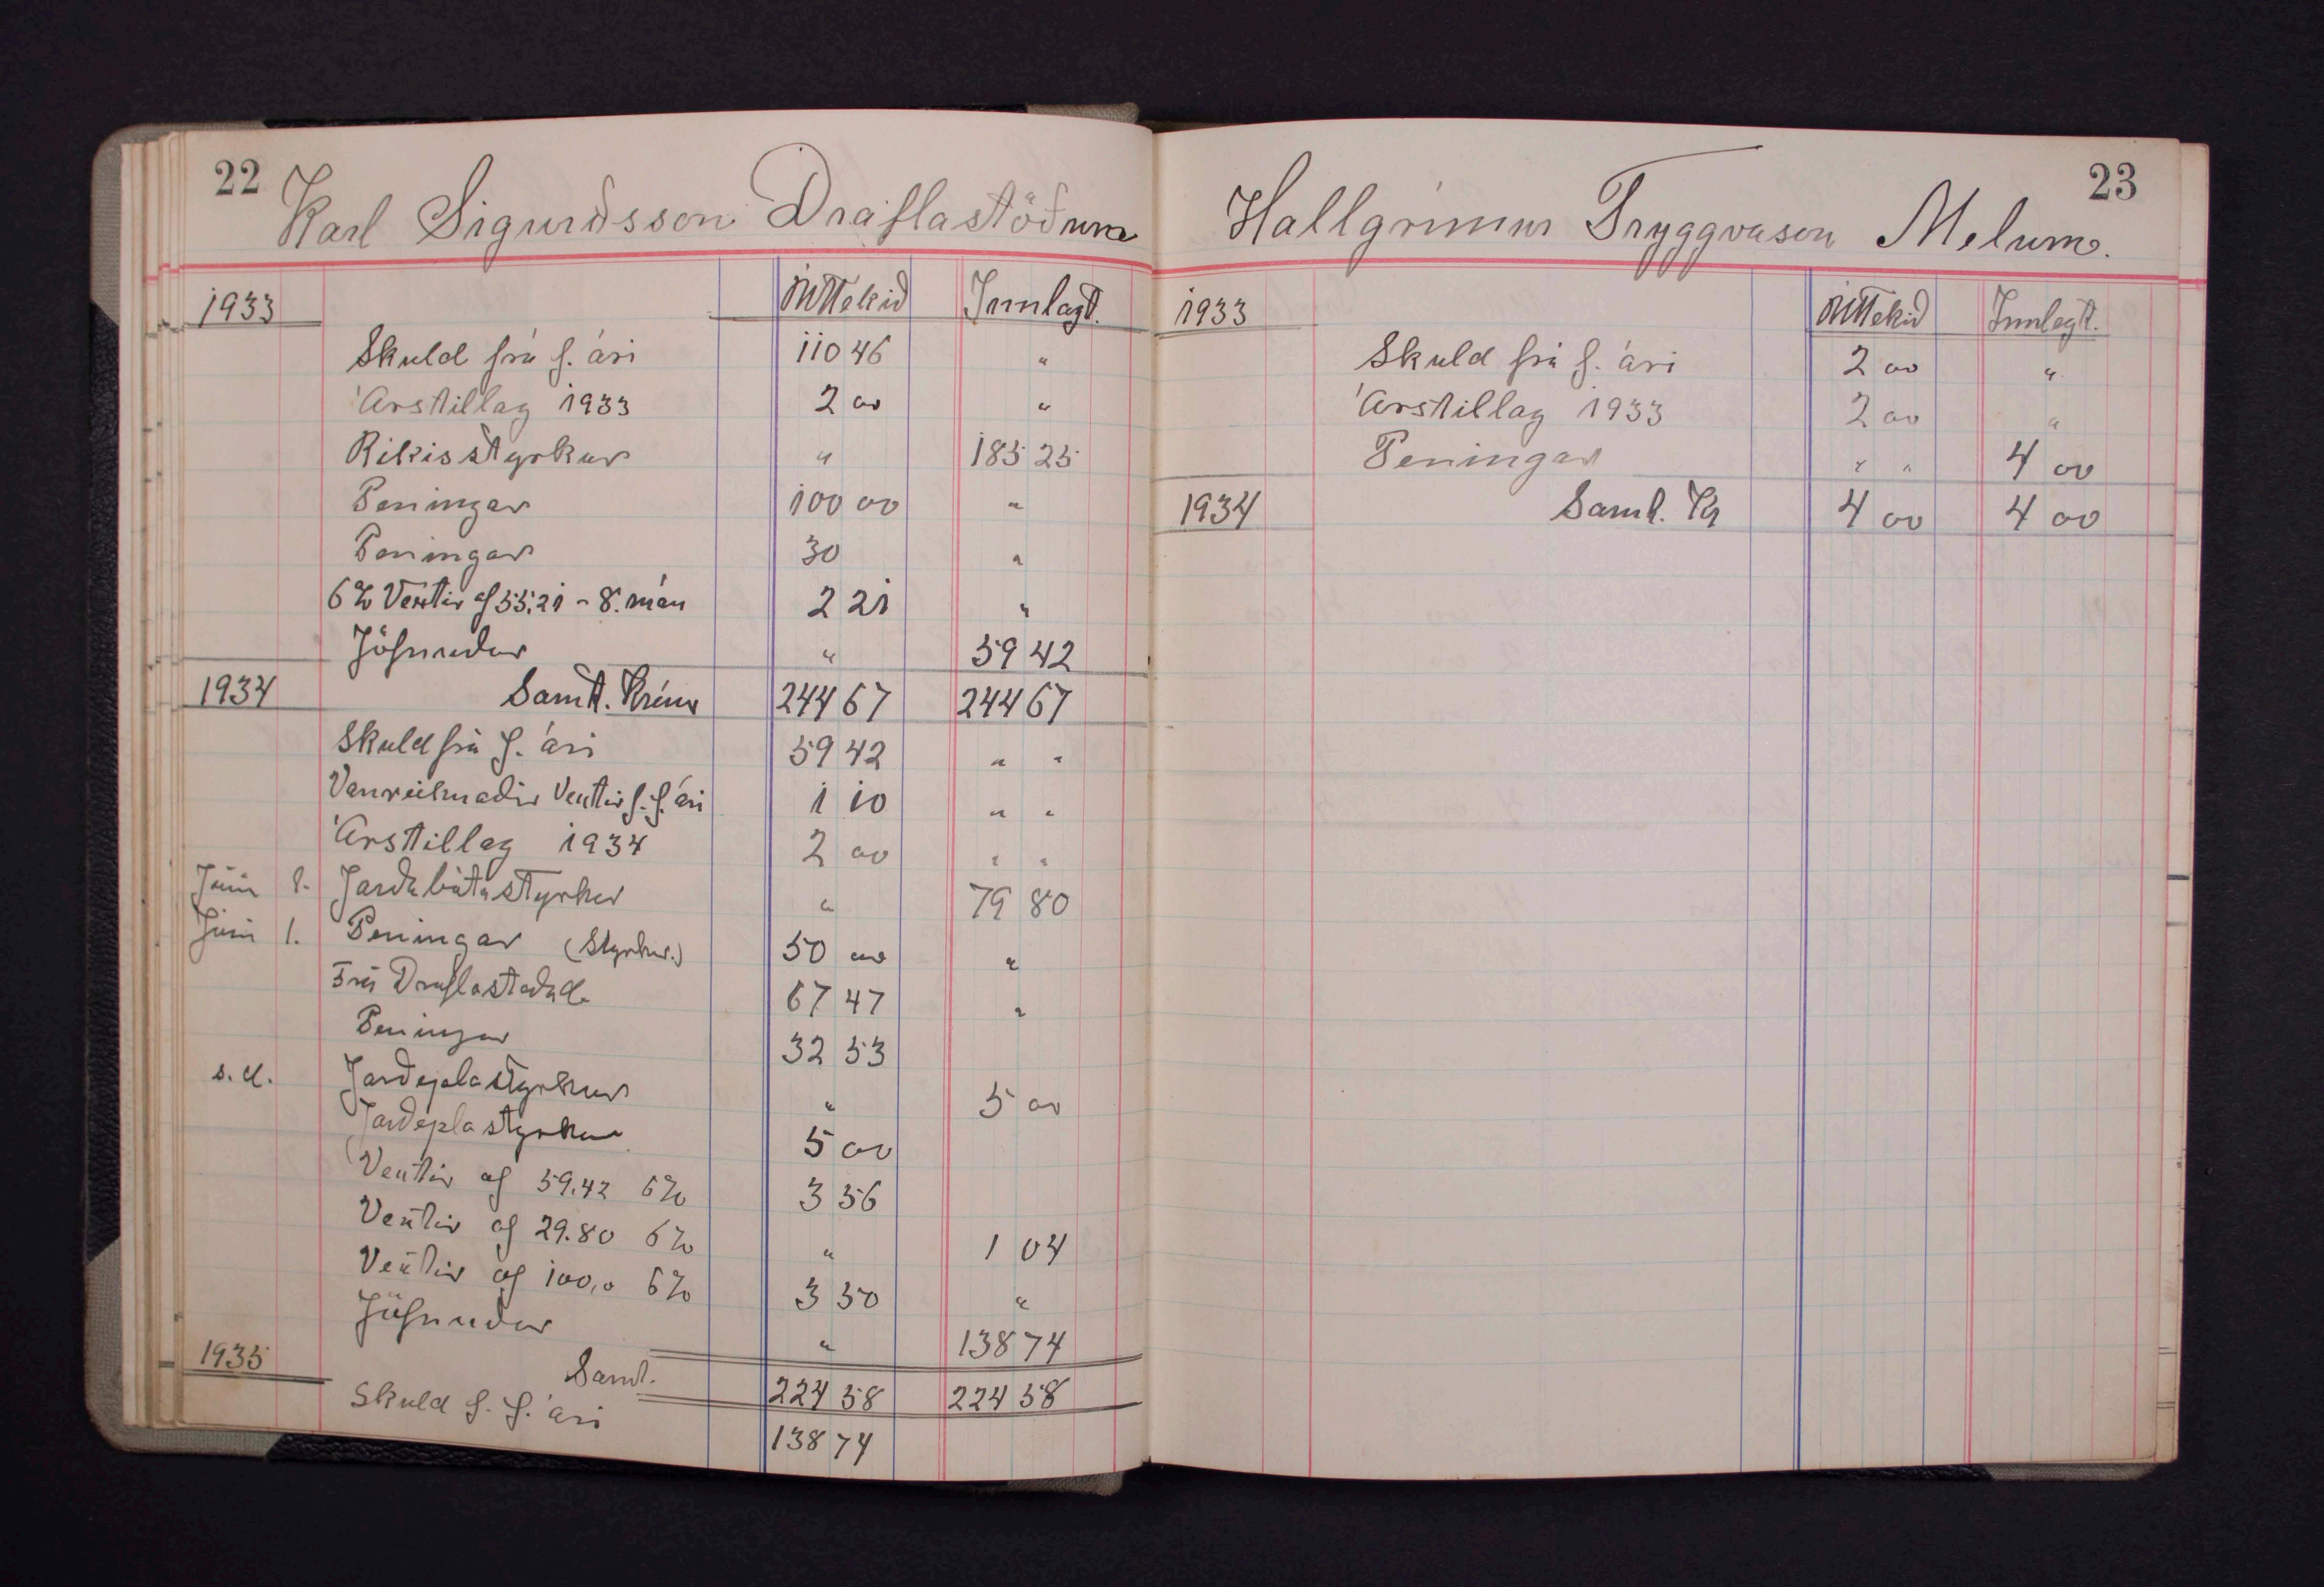 22
Karl Sigurðsson Draflastöðum
1933 Úttekið Innlagt.
Skuld frá f. ári 110 46 "
Árstillag 1933 2 00 "
Rikisstyrkur " 185 25
Peningar 100 00 "
Peningar 30 "
6% Vextir af 55,21 - 8. mán 2 21 "
Jöfnuður " 59 42
1934 Samt. Krónur 244 67 244 67
Skuld frá f. ári 59 42 " "
Vanreiknaðir Vextir f. f. ári 1 10 " "
Árstillag 1934 2 00 " "
Júní 1. Jarðabótastyrkur " 79 80
Júní 1. Peningar (Styrkur.) 50 00 "
Frá 67 47 "
Peningar 32 53
s.d. Jarðeplastyrkur " 5 00
Jarðeplastyrkur 5 00
Vextir af 59.42 6% 3 56
Vextir af 29.80 6% " 1 04
Vextir af 100,0 6% 3 50 "
Jöfnuður " 138 74
1935 Samt. 224 58 224 58
Skuld f. f. ári 138 74
23
Hallgrímur Tryggvason Melum.
1933 Úttekið Innlagt.
Skuld frá f. ári 2 00 "
Árstillag 1933 2 00 "
Peningar " " 4 00
1934 Samt. Kr 4 00 4 00